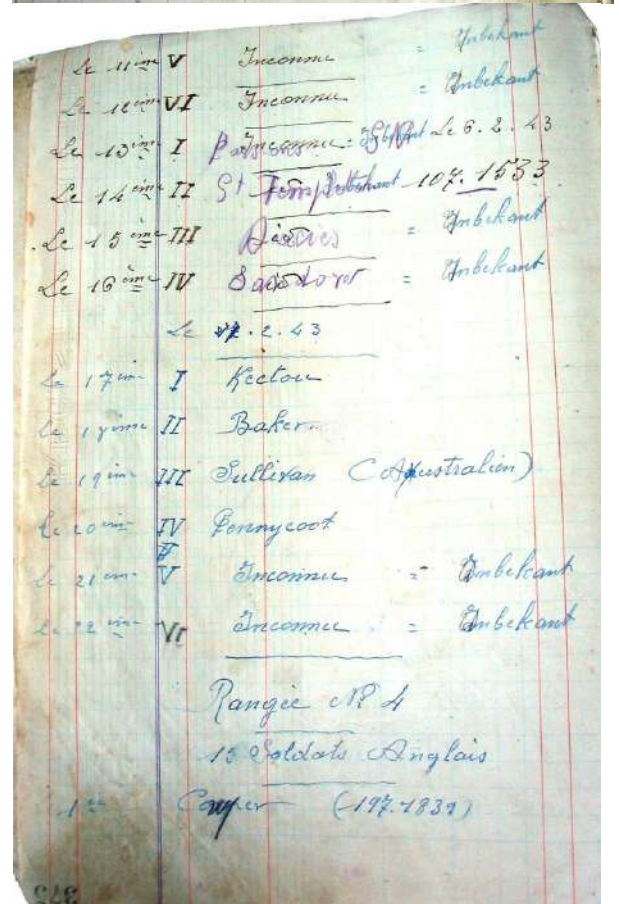 Le 11ème V Inconnu = Unbekant
Le 12ème VI Inconnu = Unbekant
Le 13ème I Parsons Inconnu = Unbekant Le 6.2.43
Le 14ème II St Unbekant 107.1533
Le 15ème III Davies = Unbekant
Le 16ème IV = Unbekant
Le .2.43
Le 17ème I Keeton
Le 18ème II Baker
Le 19ème III Sullivan (Australien)
Le 20ème IV Pennycoot
Le 21ème V Inconnu = Unbekant
Le 22ème VI Inconnu = Unbekant
Rangée Nº 4
Soldats Anglais
1er (197.1839)